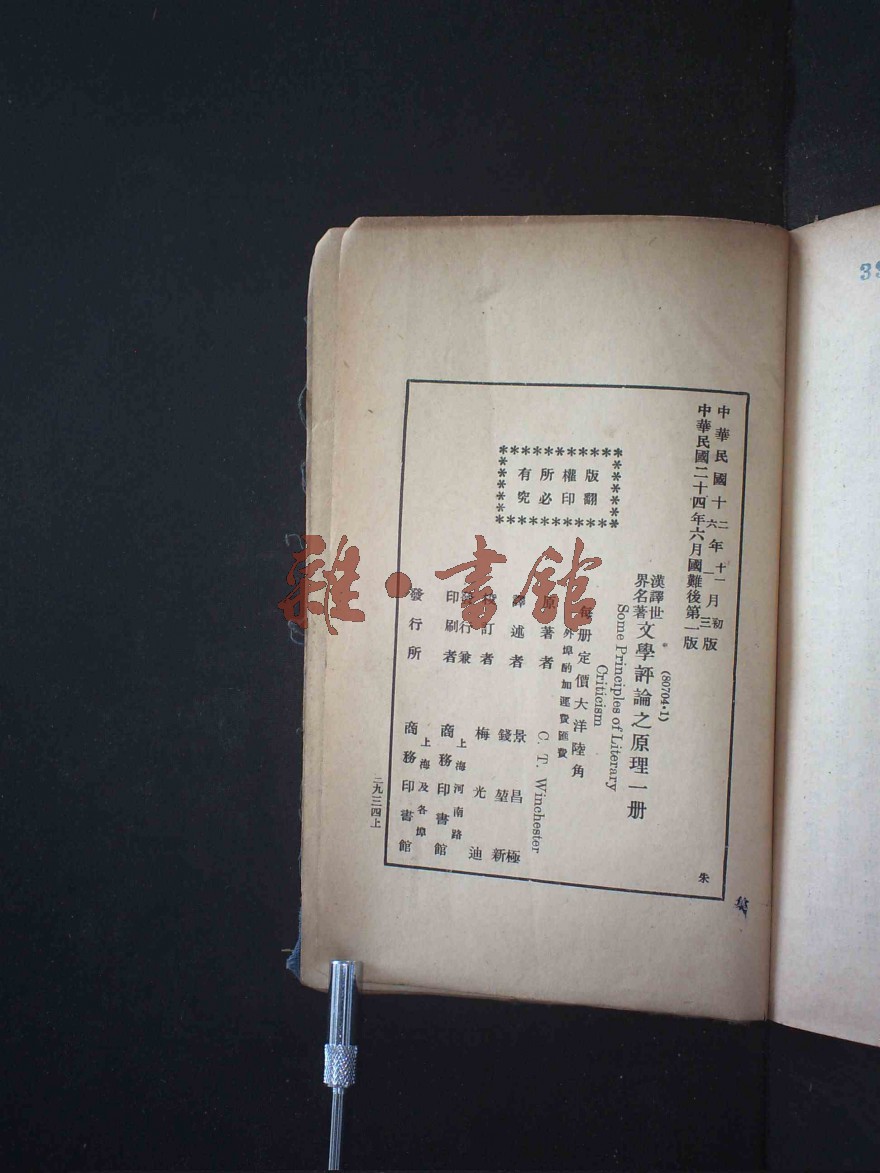 中華民國十二年十一月初版
中華民國十六年一月三版
中華民國二十四年六月國難後第一版
(80704·1)
漢譯世界名著 文學評論之原理一册
Some Principles of Literary
Criticism
每册定價大洋陸角
外埠酌加運費匯費
原著者 C. T. Winchester
譯述者 景昌極
錢堃新
校訂者 梅光迪
發行兼印刷者 上海河南路
商務印書館
發行所 上海及各埠
商務印書館
版權所有
翻印必究
二九三四上
朱
雜·書館